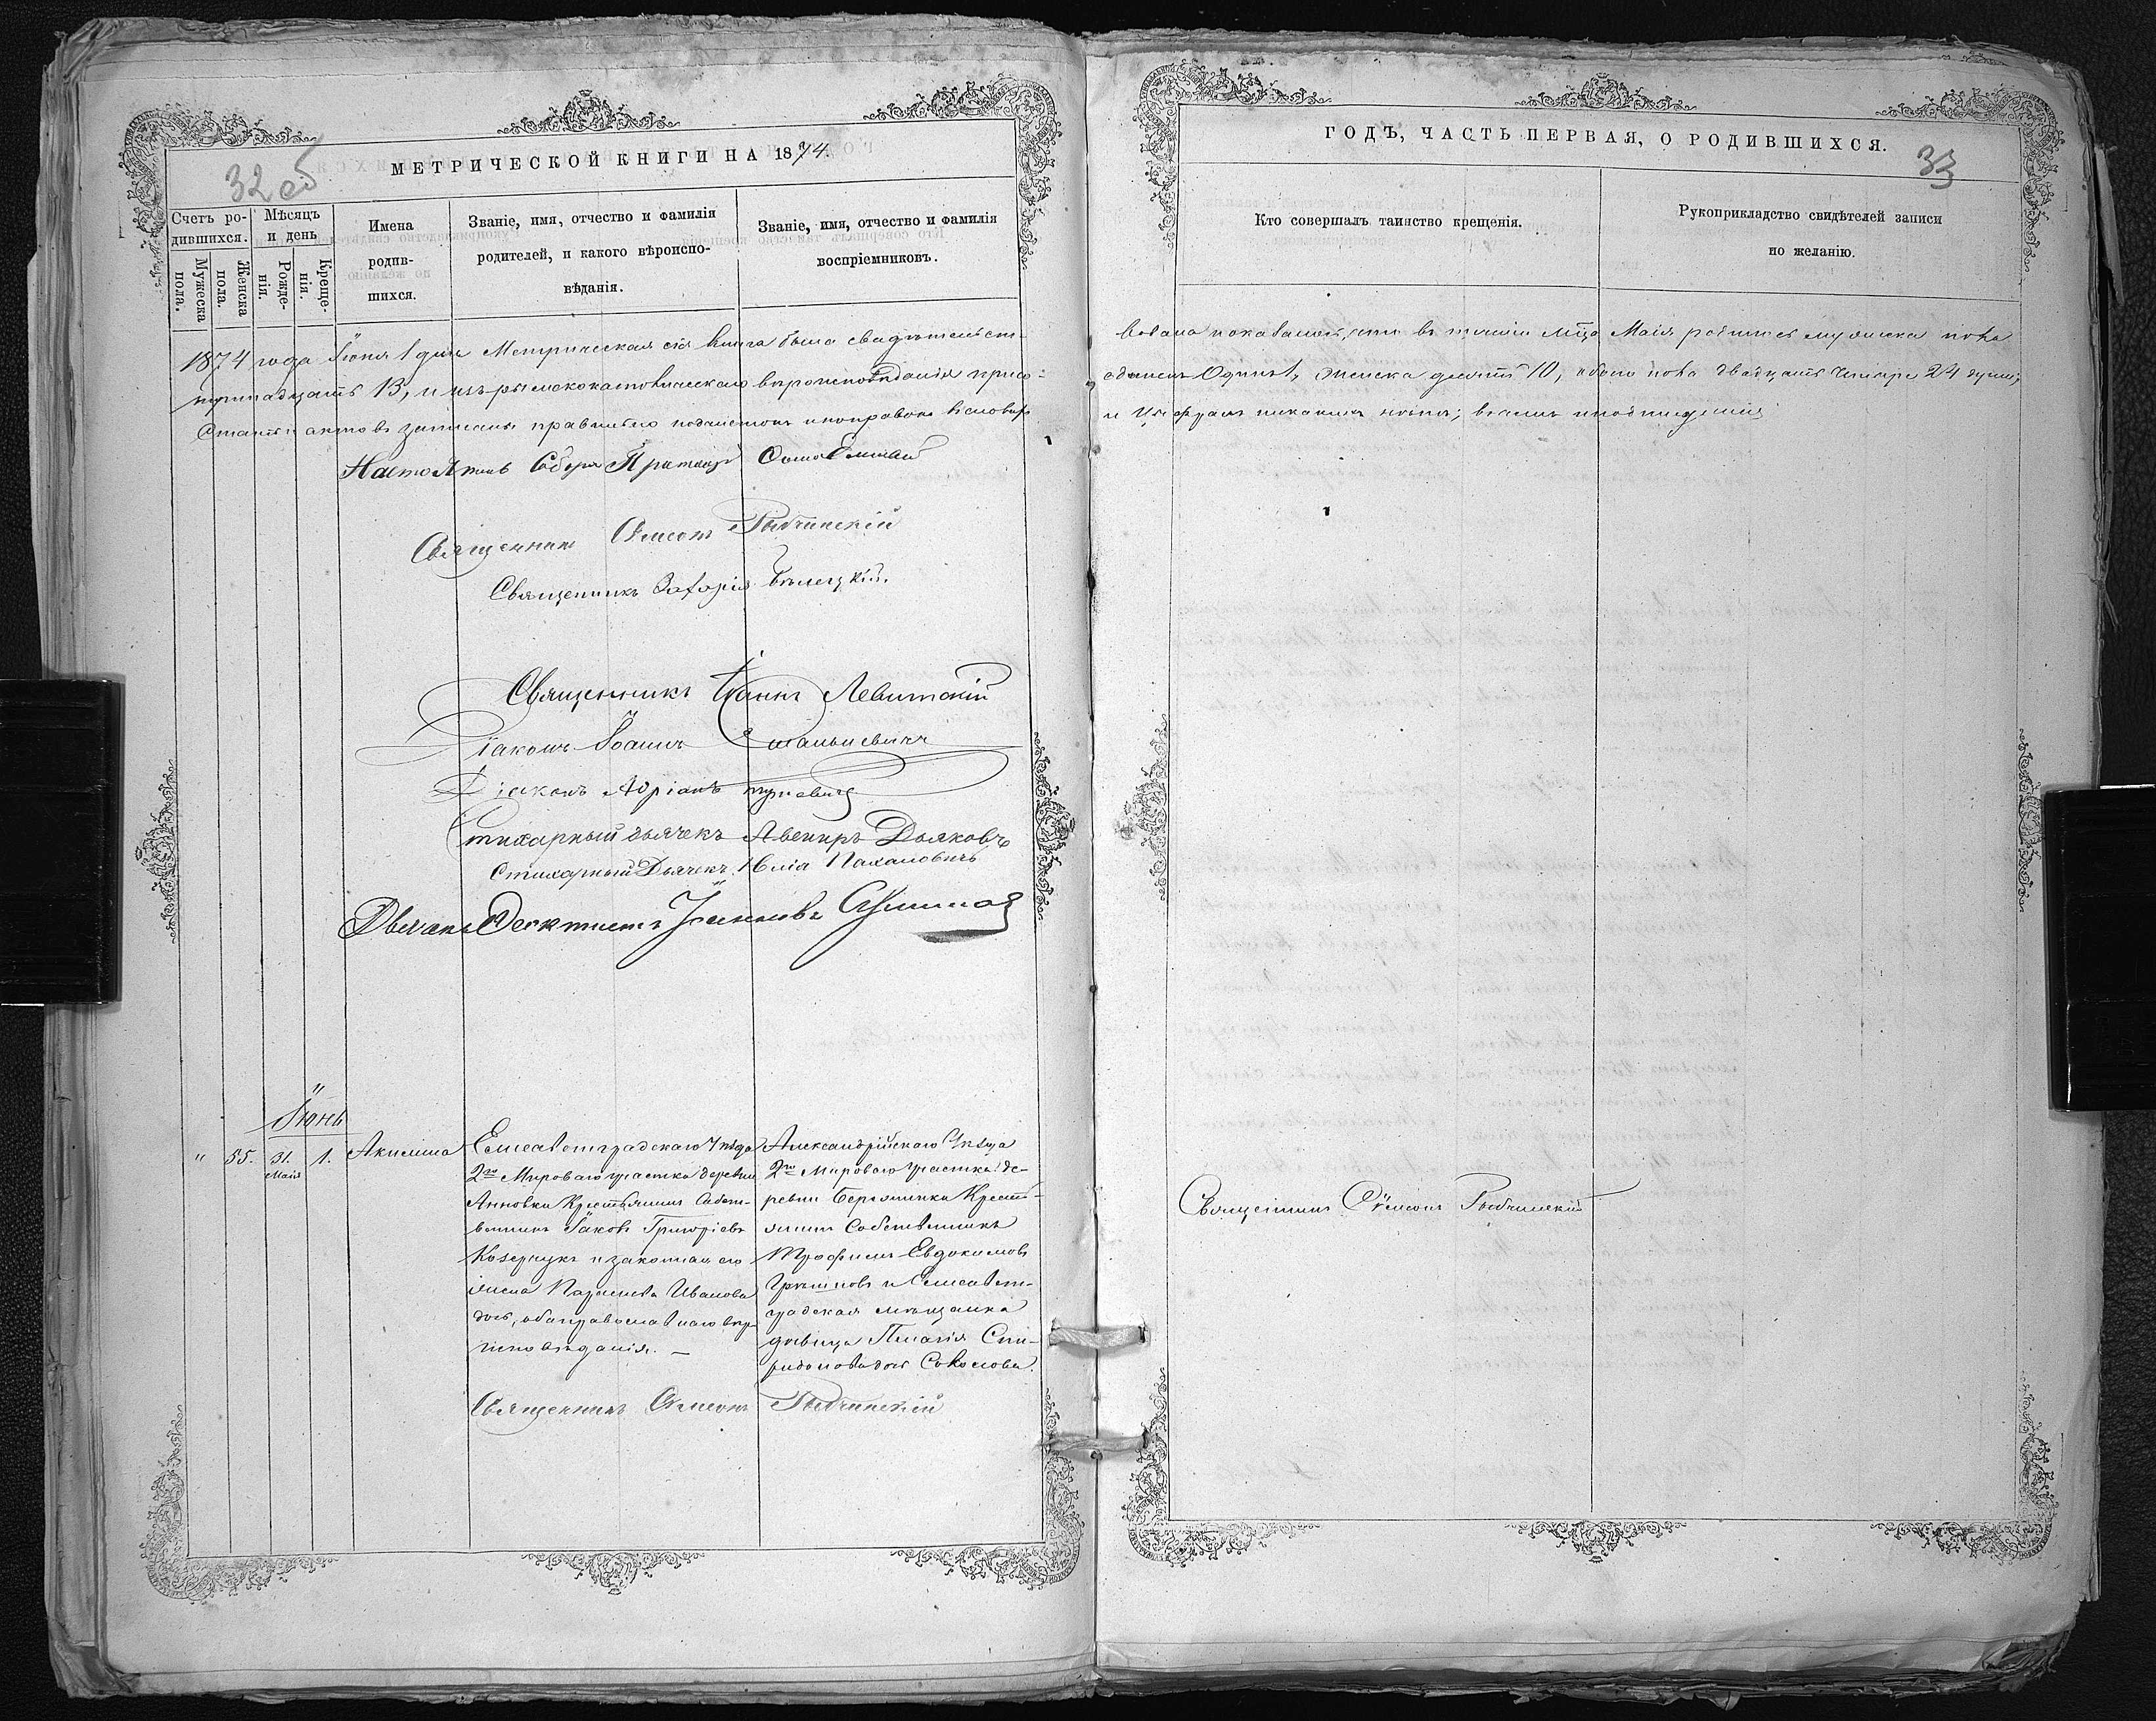 МЕТРИЧЕСКОЙ КНИГИ НА 1874.
32 об
Счетъ ро-
дившихся.
Мужеска
пола.
Женска
пола.
Мѣсяцъ
и день
Рожде-
нія.
Креще-
нія.
Имена
родив-
шихся.
Званіе, имя, отчество и фамилія
родителей, и какого вѣроиспо-
вѣданія.
Званіе, имя, отчество и фамилія
воспріемниковъ.
1874 года Іюня 1 дня Метрическая сія книга была свидѣтельст-
тринадцать 13, и изъ римскокатоличаскаго вѣроисповѣданія присо-
Статьи актовъ записаны правильно
Настоятель Собора
Священникъ Симеонъ Рыбчинскій
Священникъ Захарія Бѣлецкій.
Священникъ Іоаннъ Левитскій
Діаконъ Іоаннъ
Діаконъ Адріанъ
Стихарный дьячекъ Авениръ Дьяковъ
Стихарный Дьячекъ Юлія
Іюнь
" 55. 31. Маія 1. Акилина
Елисаветградскаго Уѣзда
2го Мироваго участка деревни
Анновки Крестьянинъ Собст-
венникъ Іаковъ Григоріевъ
и законная его
жена Параскева Иванова
дочь, оба православнаго вѣро-
исповѣданія. —
Александрійскаго Уѣзда
2го Мироваго участка де-
ревни Березинки Крест-
янинъ Собственникъ
Трофимъ Евдокимовъ
и Елисавет-
градская мѣщанка
дѣвица Пелагія Спи-
ридонова дочь Соколова.
Священникъ Симеонъ Рыбчинскій
ГОДЪ, ЧАСТЬ ПЕРВАЯ, О РОДИВШИХСЯ.
33
Кто совершалъ таинство крещенія.
Рукоприкладство свидѣтелей записи
по желанію.
вована показалось, что въ теченіи Мца Маія родилось мужеска пола
единенъ Одинъ 1, Женска десять 10, обоего пола двадцать четыре 24 души;
и Священникъ Симеонъ Рыбчинскій